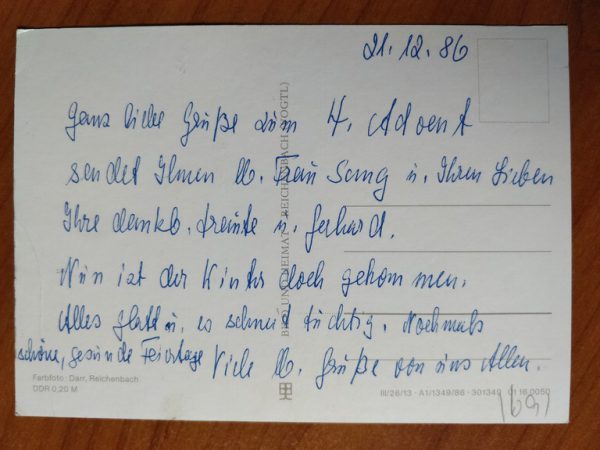 21.12.86
Ganz liebe Grüße zum 4. Advent
sendet Ihnen lb. Frau Sang u. Ihren Lieben
Ihre dankb. u. Gerhard.
Nun ist der Winter doch gekommen.
Alles glatt u. es schneit tüchtig. Nochmals
schöne, gesunde Feiertage Viele lb. Grüße von uns Allen.
BILD UND HEIMAT REICHENBACH (VOGTL)
Farbfoto: Darr, Reichenbach
DDR 0,20 M
III/26/13 · A1/1349/86 · 301340 01 16 0050